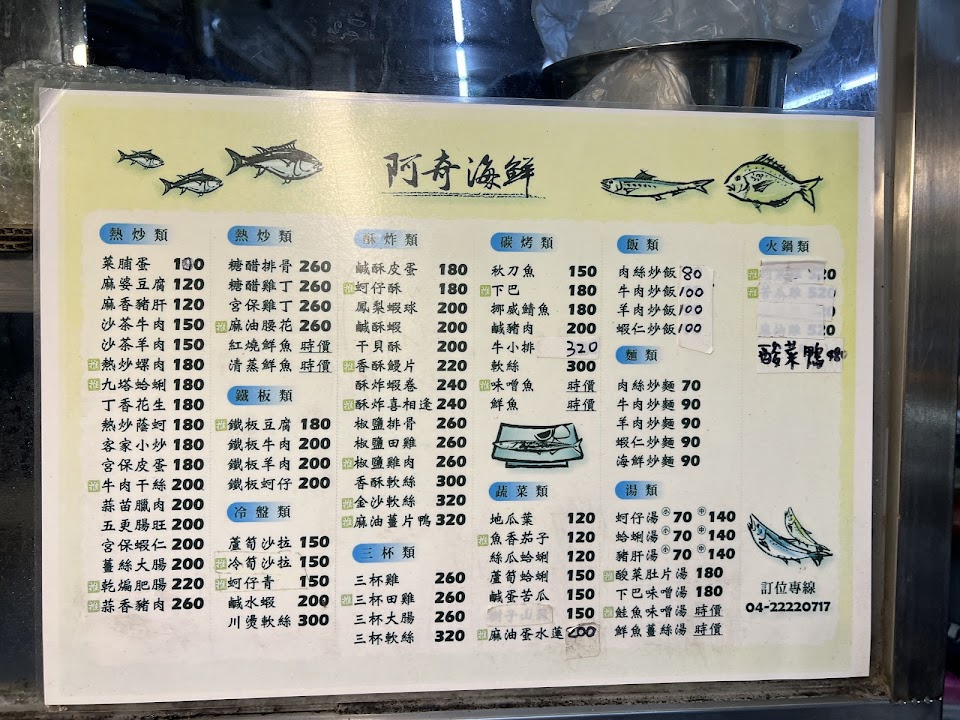 阿奇海鮮
熱炒類
菜脯蛋
麻婆豆腐 120
麻香豬肝 120
沙茶牛肉 150
沙茶羊肉 150
推 熱炒螺肉 180
推 九塔蛤蜊 180
丁香花生 180
熱炒蔭蚵 180
客家小炒 180
宮保皮蛋 180
推 牛肉干絲 200
蒜苗臘肉 200
五更腸旺 200
宮保蝦仁 200
薑絲大腸 200
推 乾煸肥腸 220
推 蒜香豬肉 260
熱炒類
糖醋排骨 260
糖醋雞丁 260
宮保雞丁 260
推 麻油腰花 260
紅燒鮮魚 時價
清蒸鮮魚 時價
鐵板類
推 鐵板豆腐 180
鐵板牛肉 200
鐵板羊肉 200
鐵板蚵仔 200
冷盤類
蘆筍沙拉 150
推 冷筍沙拉 150
推 蚵仔青 150
鹹水蝦 200
川燙軟絲 300
酥炸類
鹹酥皮蛋 180
推 蚵仔酥 180
鳳梨蝦球 200
鹹酥蝦 200
干貝酥 200
推 香酥饅片 220
酥炸蝦卷 240
推 酥炸喜相逢 240
椒鹽排骨 260
椒鹽田雞 260
推 椒鹽雞肉 260
香酥軟絲 300
推 金沙軟絲 320
推 麻油薑片鴨 320
三杯類
三杯雞 260
推 三杯田雞 260
三杯大腸 260
三杯軟絲 320
碳烤類
秋刀魚 150
推 下巴 180
挪威鯖魚 180
鹹豬肉 200
牛小排 320
軟絲 300
推 味噌魚 時價
鮮魚 時價
蔬菜類
地瓜葉 120
推 魚香茄子 120
絲瓜蛤蜊 120
蘆筍蛤蜊 150
鹹蛋苦瓜 150
150
推 麻油蛋水蓮 200
飯類
肉絲炒飯 80
牛肉炒飯 100
羊肉炒飯 100
蝦仁炒飯 100
麵類
肉絲炒麵 70
牛肉炒麵 90
羊肉炒麵 90
蝦仁炒麵 90
海鮮炒麵 90
湯類
蚵仔湯 小 70 中 140
蛤蜊湯 小 70 中 140
豬肝湯 小 70 中 140
推 酸菜肚片湯 180
下巴味噌湯 180
推 鮭魚味噌湯 時價
鮮魚薑絲湯 時價
火鍋類
酸菜鴨 480
訂位專線
04-22220717